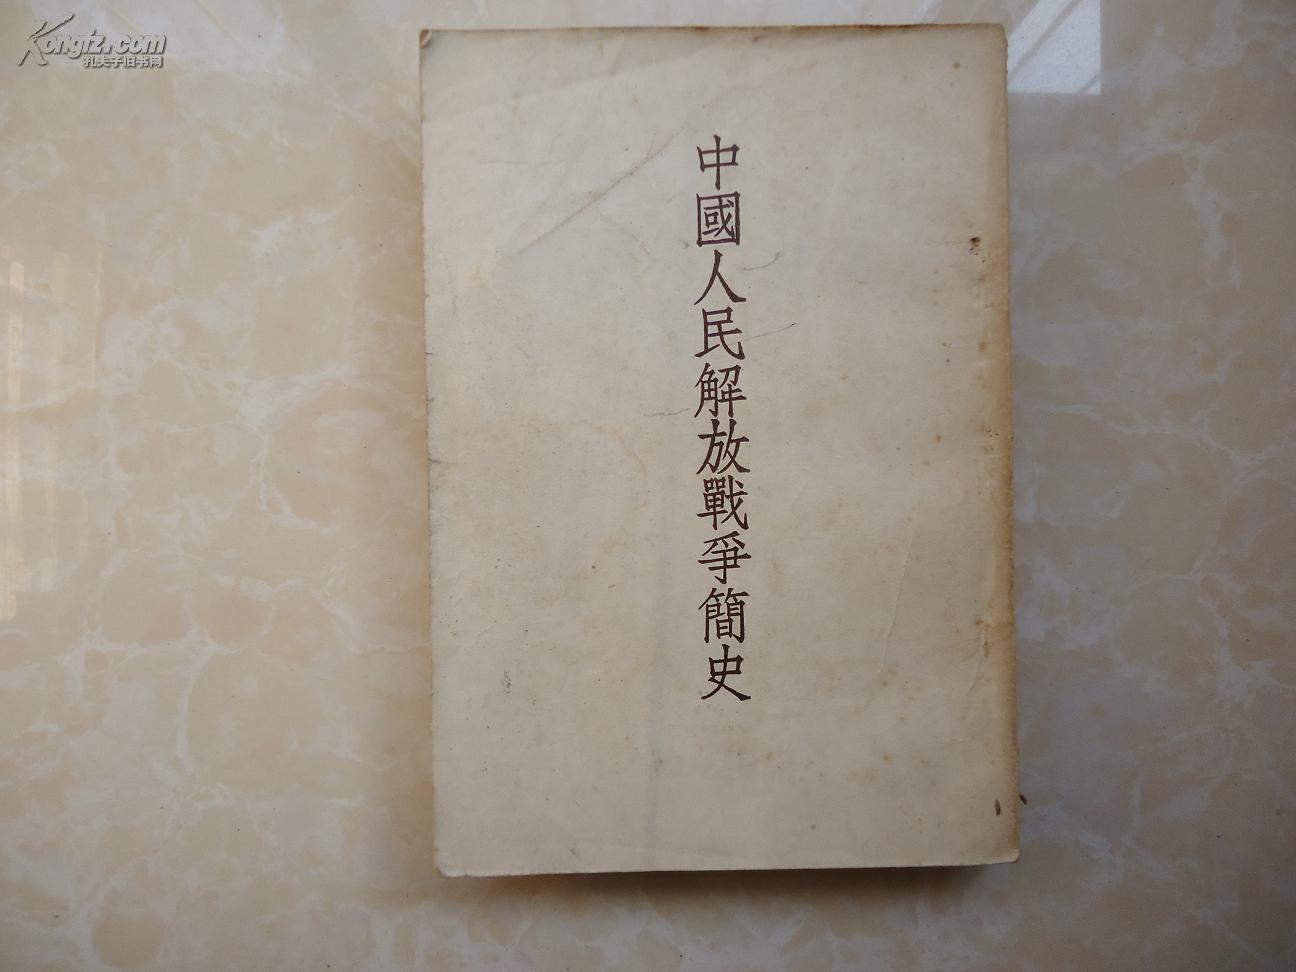 Kongfz.com
孔夫子旧书网
中國人民解放戰爭簡史